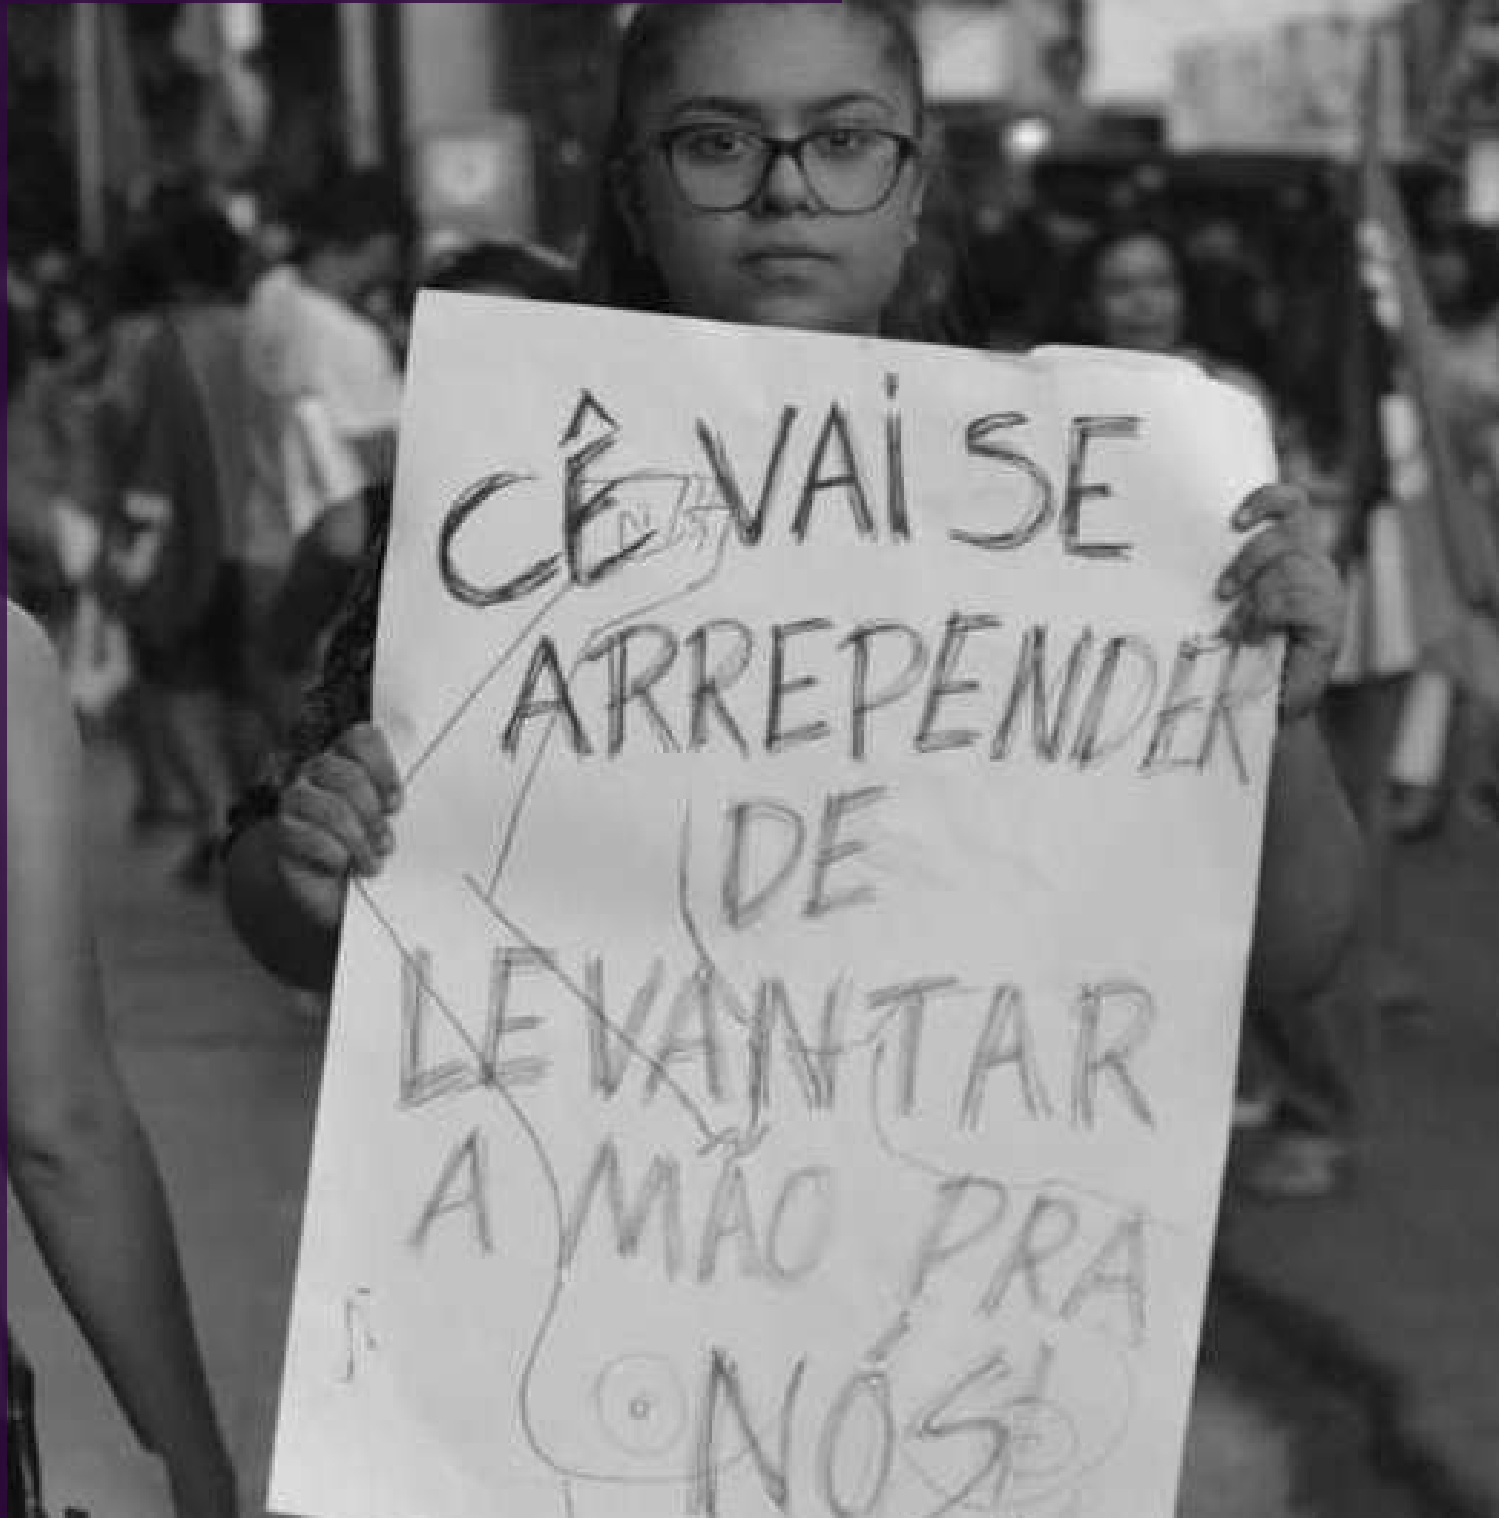 CÊ VAI SE
ARREPENDER
DE
LEVANTAR
A MÃO PRA
NÓS!